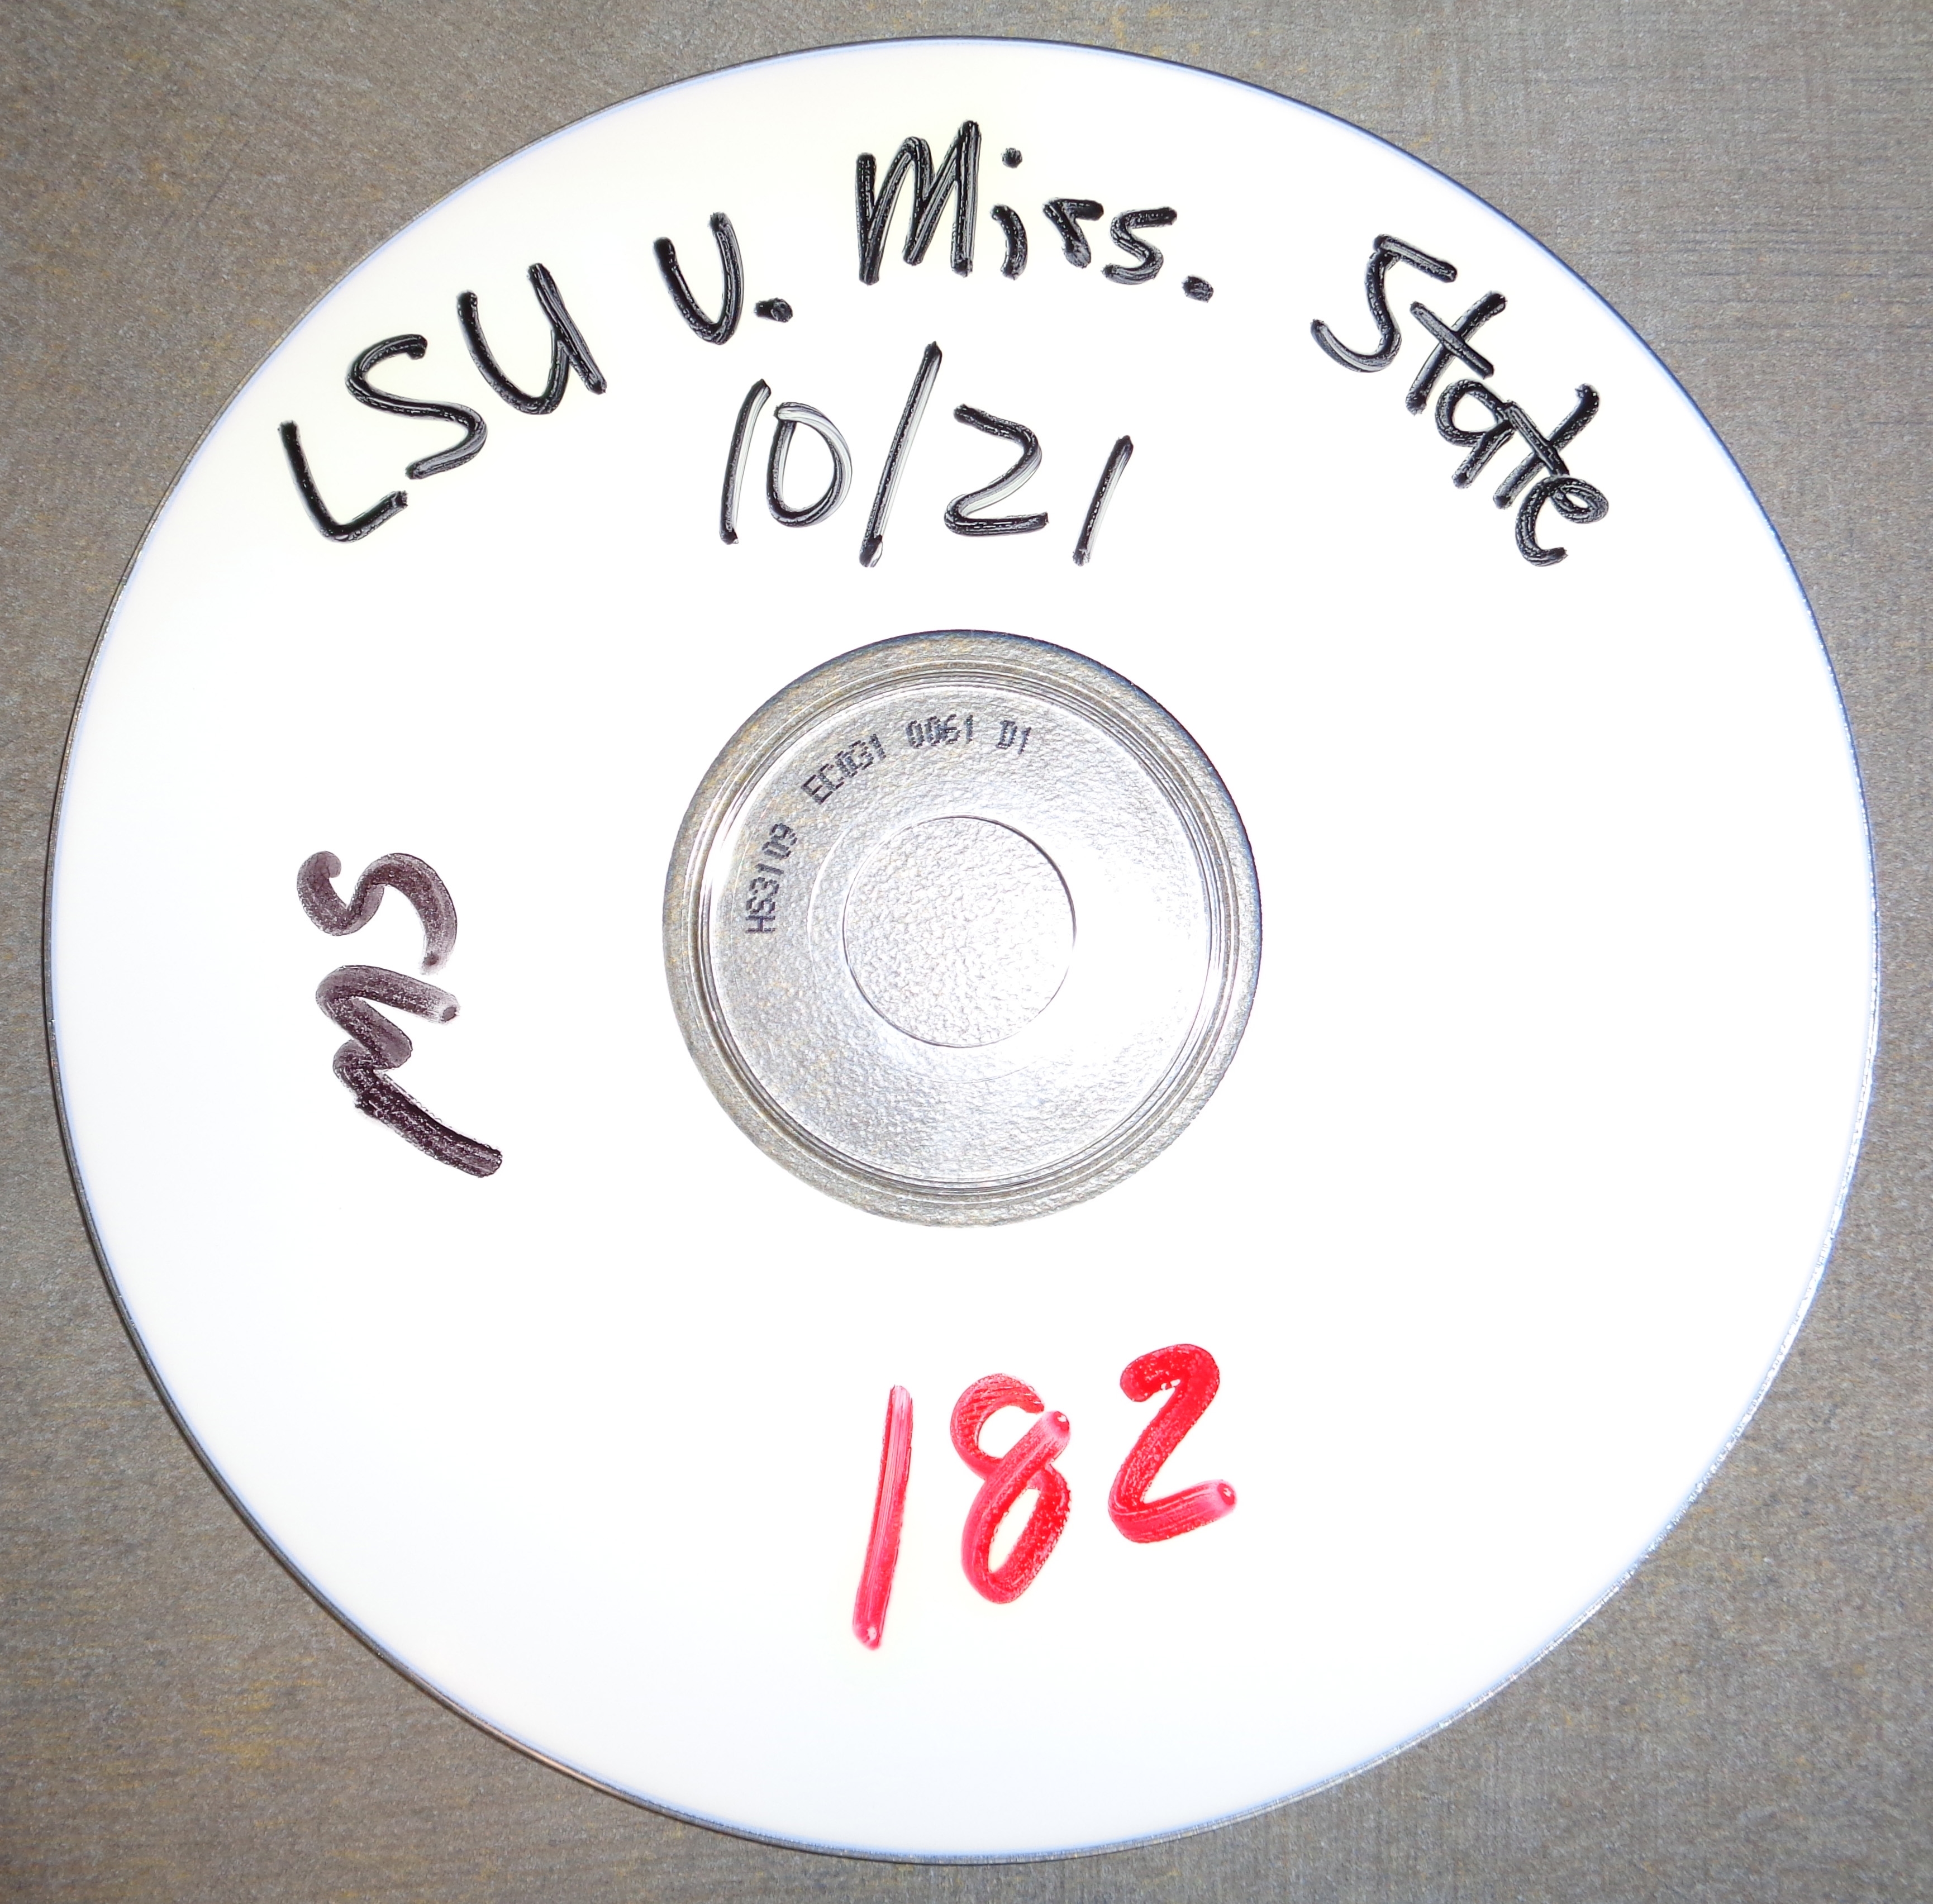 LSU v. Miss. State
10/21
HS3109 EC031 0061 D1
MS
182